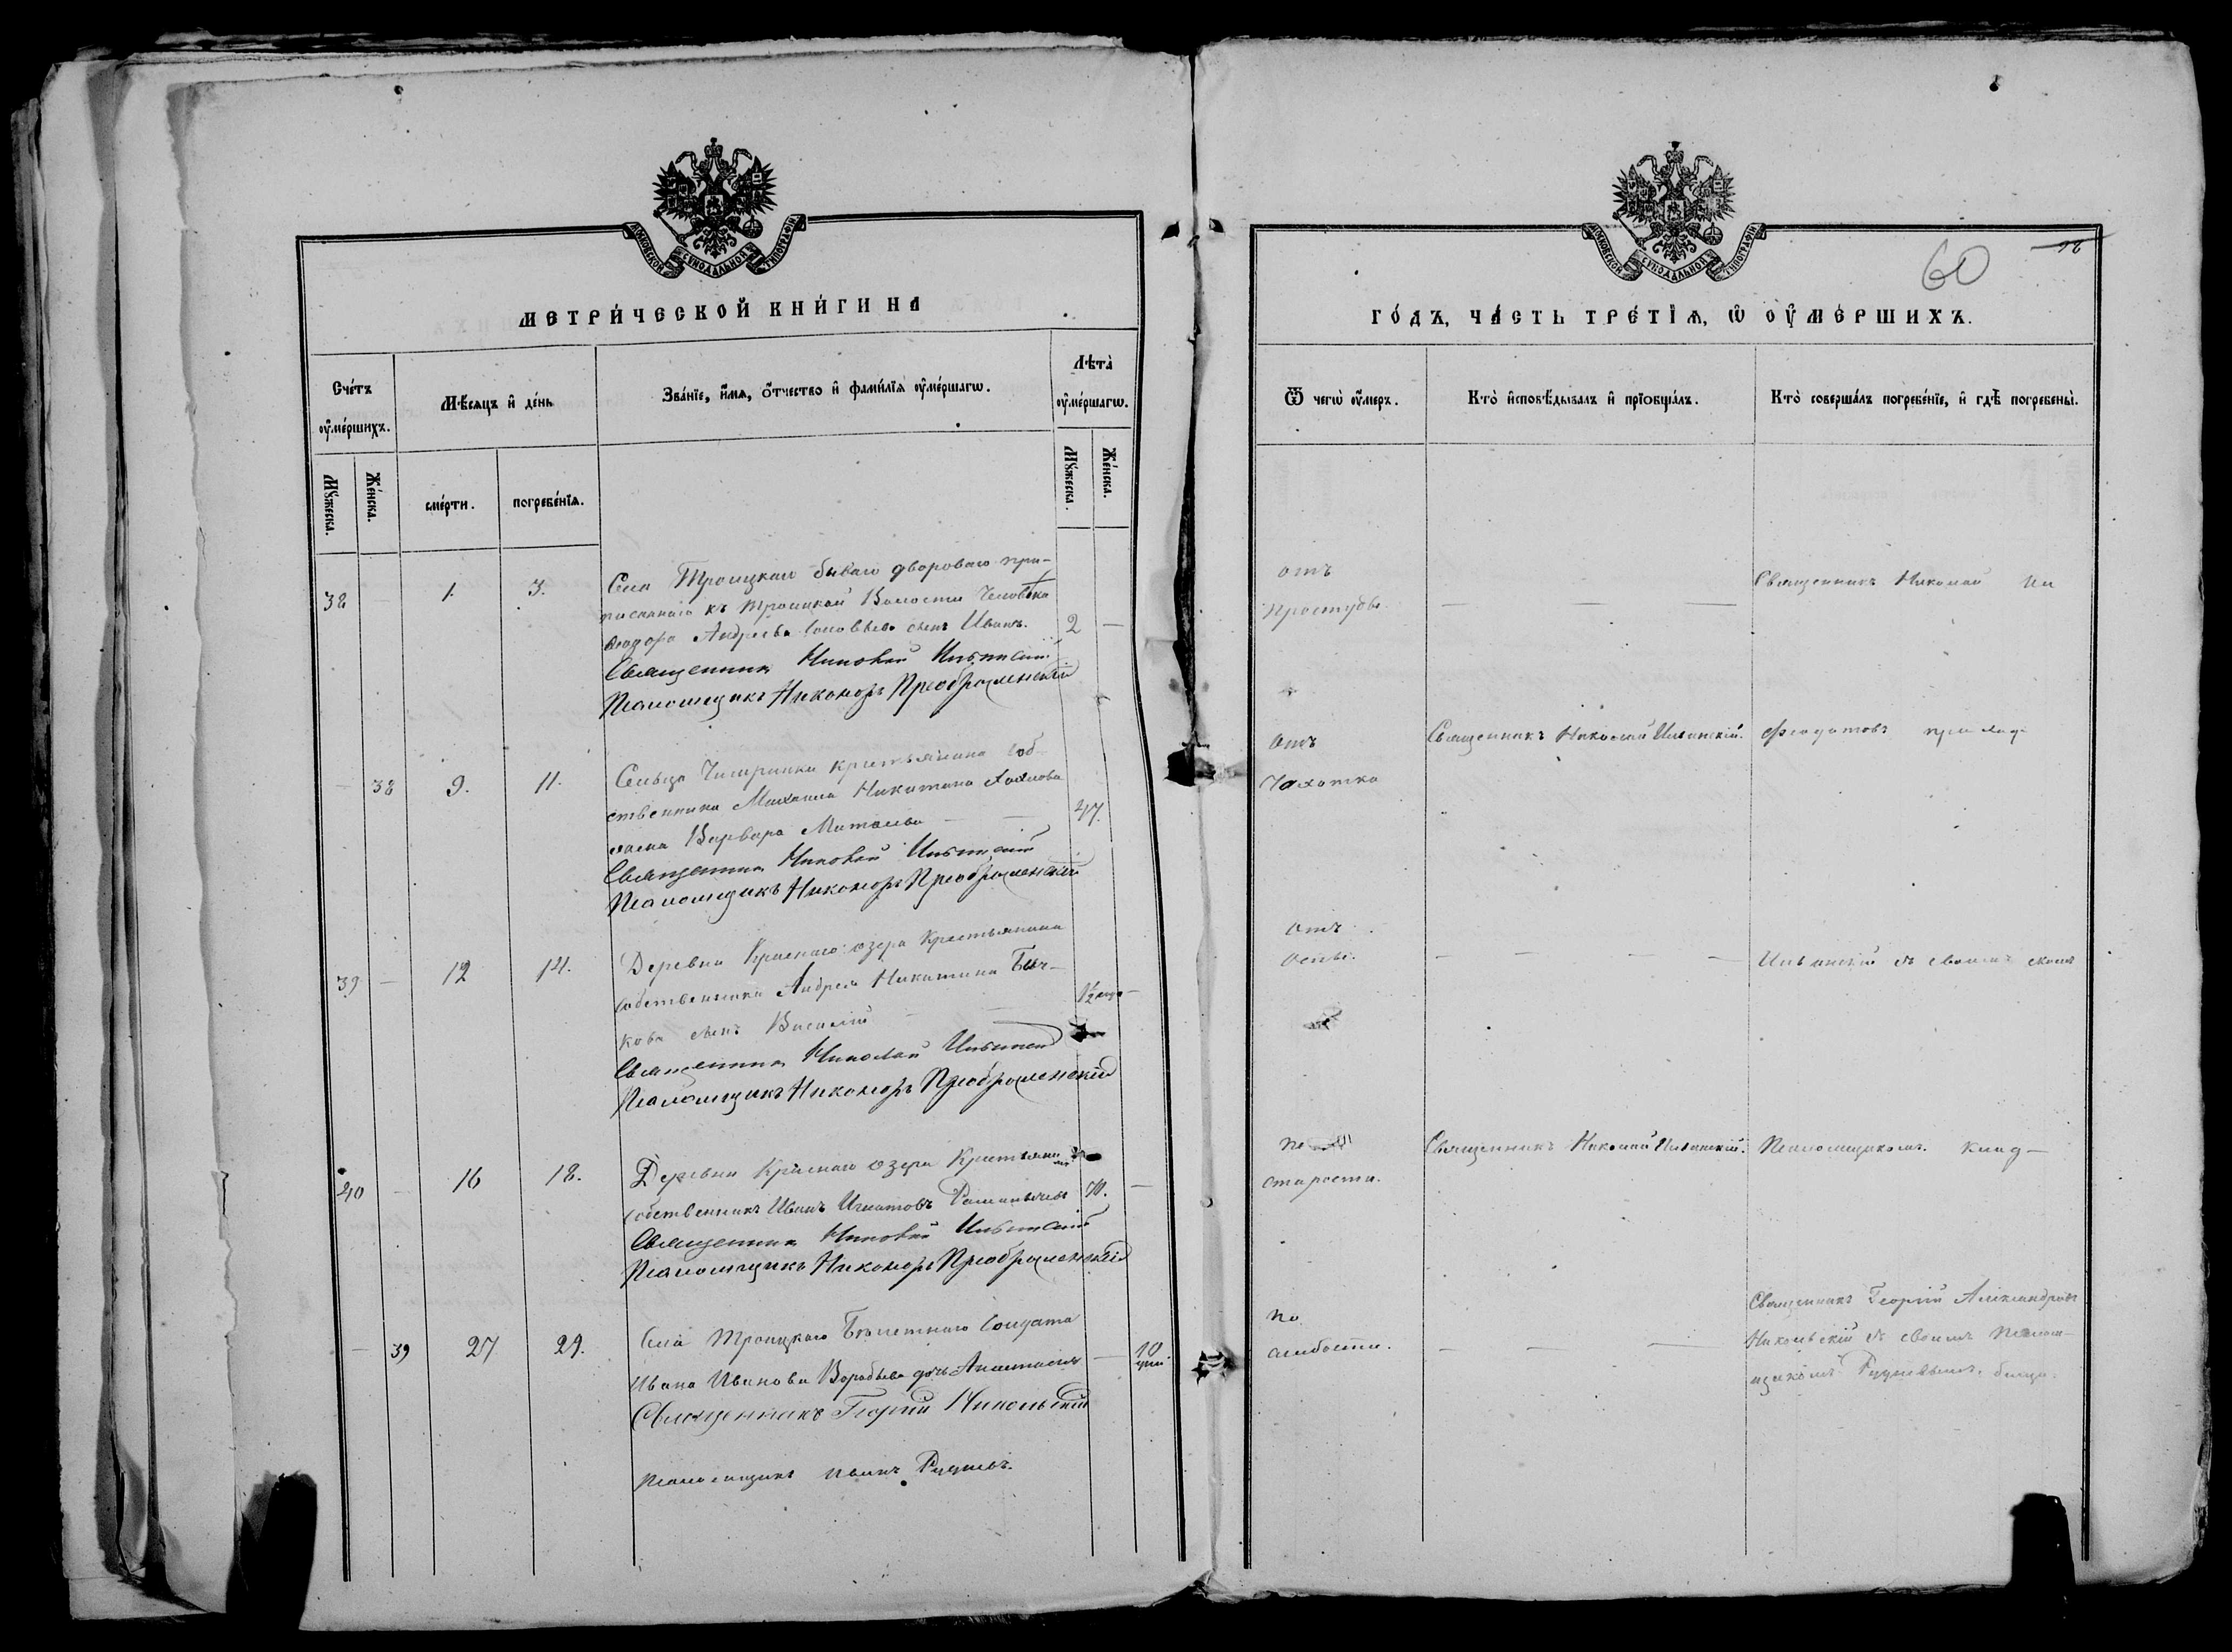 МОСКОВСКОЙ СѴНОДАЛЬНОЙ ТИПОГРАФІИ
МЕТРИ́ЧЕСКОЙ КНИ́ГИ НА
Сче́тъ оу҆ме́ршихъ.
Мѣ́сяцъ и҆ де́нь
Зва́нїе, и҆́мѧ, ѻ҆́тчество и҆ фами́лїѧ оу҆ме́ршагѡ.
Лѣ́та оу҆ме́ршагѡ.
Мꙋ́жеска.
Же́нска.
сме́рти.
погребе́нїѧ.
Мꙋ́жеска.
Же́нска.
38 — 1. 3.
Села Троицкаго бывшаго двороваго при-
писаннаго къ Троицкой Волости Человѣка
Андреева Соловьева сынъ Иванъ. 2 —
Священникъ Николай Ильинскій
Псаломщикъ Никоноръ Преображенскій
— 38 9. 11.
Сельца крестьянина соб-
ственника Михаила Никитина
жена Варвара 47.
Священникъ Николай Ильинскій
Псаломщикъ Никоноръ Преображенскій
39 — 12 14.
Деревни Краснаго озера Крестьянина
собственника Андрея Никитина Быч-
кова сынъ Василій 1½ —
Священникъ Николай Ильинскій
Псаломщикъ Никоноръ Преображенскій
40 — 16 18.
Деревни Краснаго озера Крестьянинъ
собственникъ Иванъ Игнатовъ 70. —
Священникъ Николай Ильинскій
Псаломщикъ Никоноръ Преображенскій
— 39 27 29.
Села Троицкаго Билетнаго Солдата
Ивана Иванова Воробьева дочь Анастасія — 10
Священникъ Георгій Никольскій
Псаломщикъ Иванъ Рудневъ.
МОСКОВСКОЙ СѴНОДАЛЬНОЙ ТИПОГРАФІИ
60
ГО́ДЪ, ЧА́СТЬ ТРЕ́ТЇѦ, Ѡ҆ ОУ҆МЕ́РШИХЪ.
Ѿ чегѡ̀ оу҆́меръ.
Кто̀ и҆сповѣ́дывалъ и҆ прїобща́лъ.
Кто̀ соверша́лъ погребе́нїе, и҆ гдѣ̀ погребены̀.
отъ
простуды. — — —
Священникъ Николай Ил
отъ
чахотки
Священникъ Николай Ильинскій.
Феодотовъ приход-
отъ
оспы. — — — —
Ильинскій съ своимъ
по
старости.
Священникъ Николай Ильинскій.
Псаломщикомъ. клад-
по
слабости. — — —
Священникъ Георгій Александровъ
Никольскій съ своимъ Псалом-
щикомъ Рудневымъ.